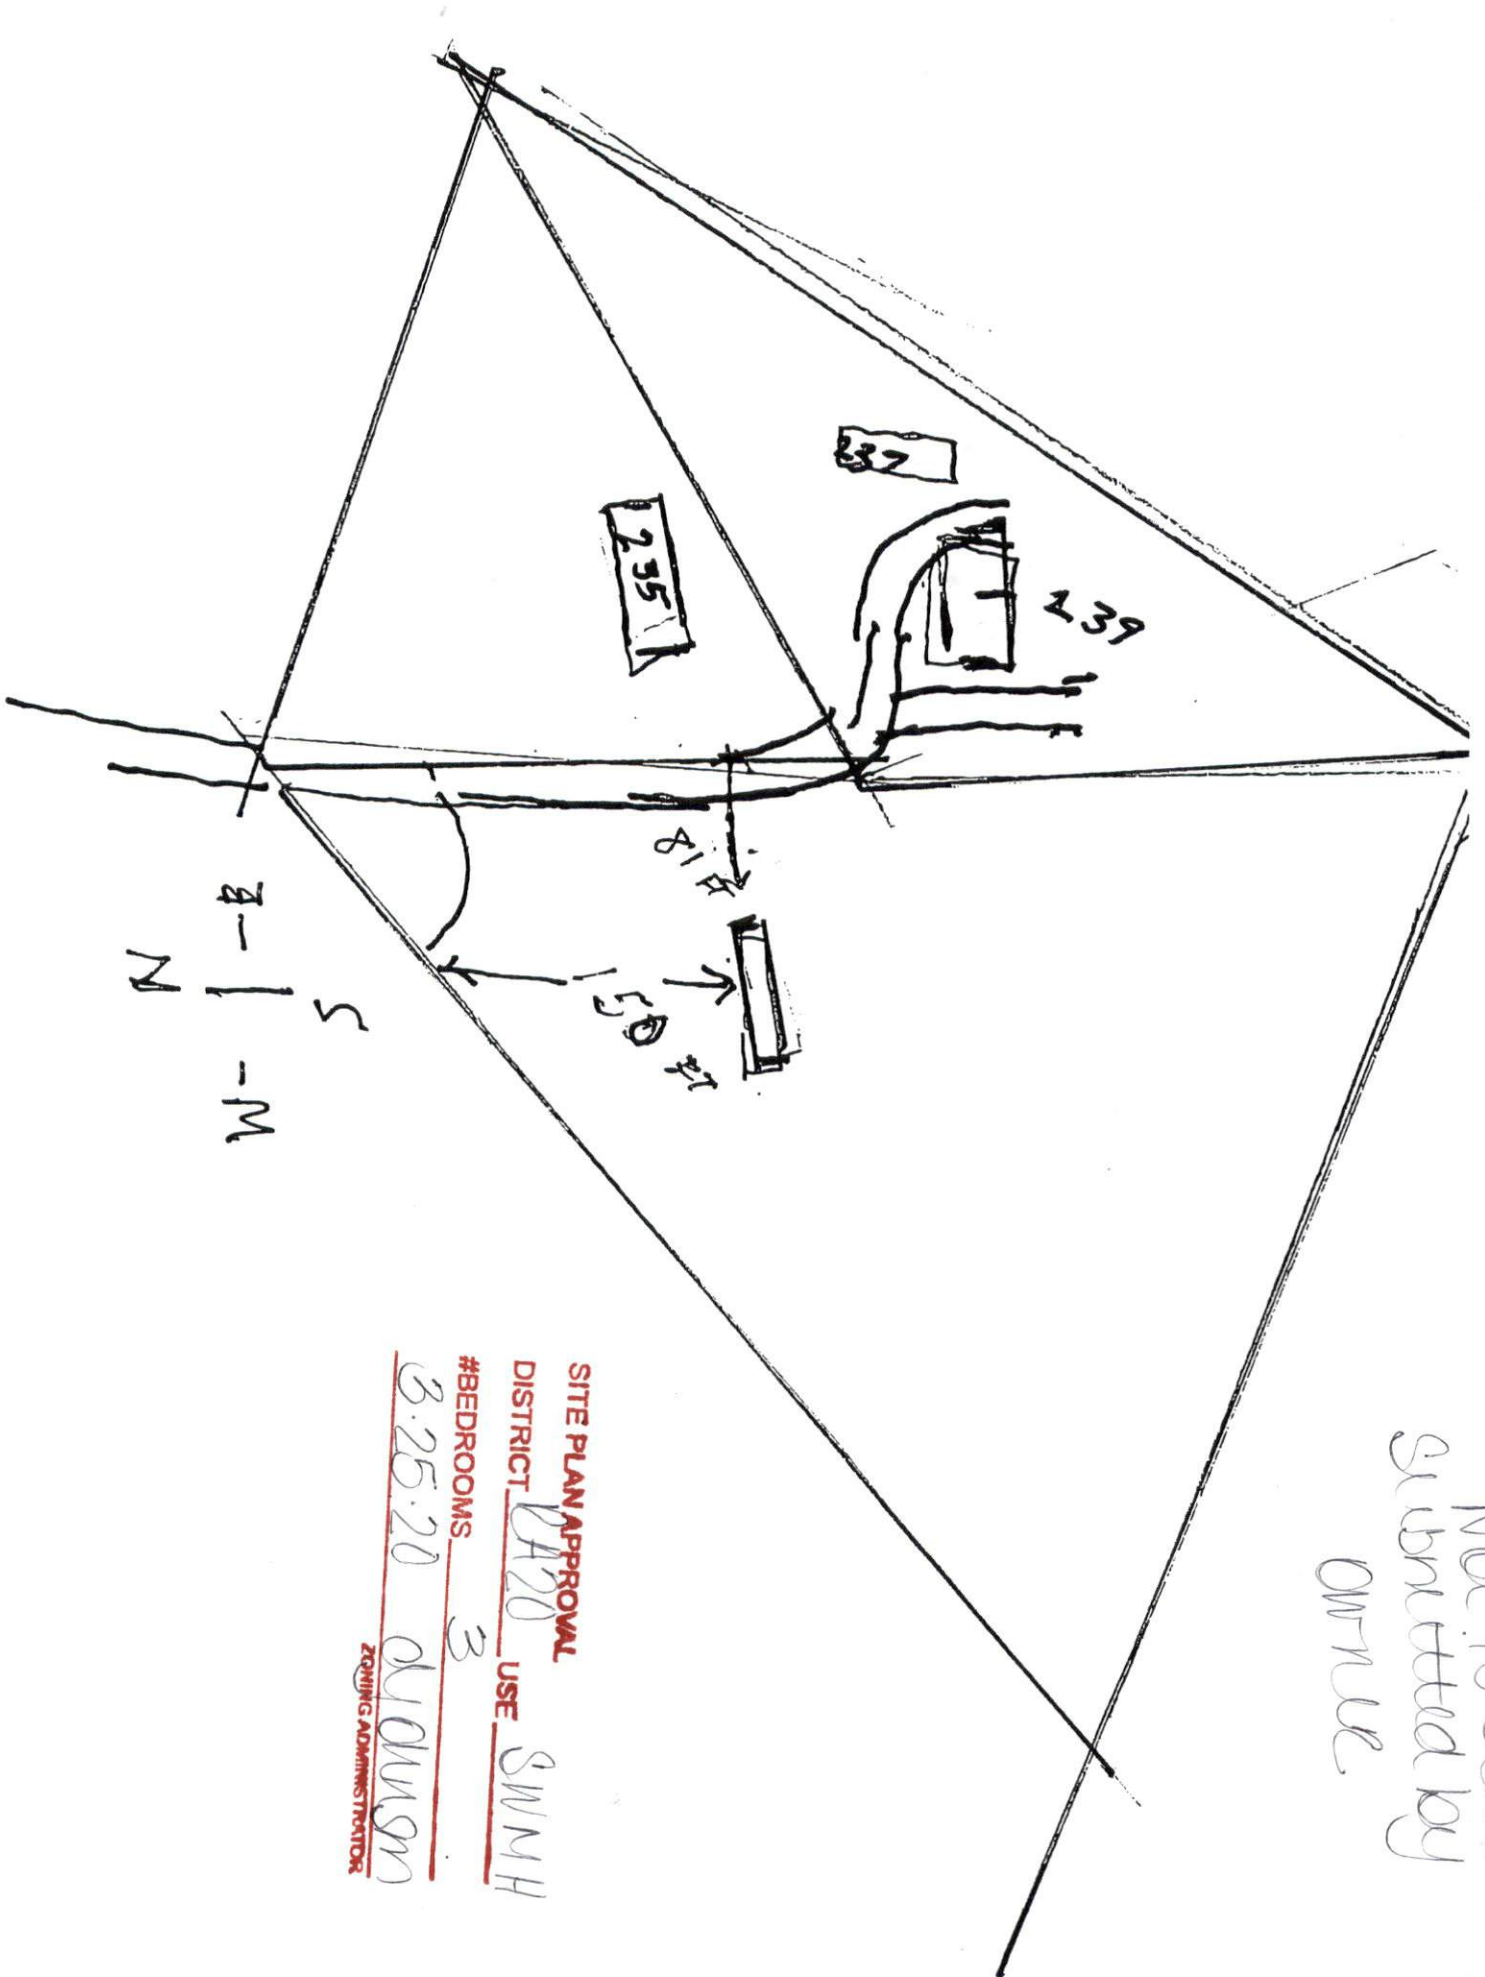 submitted by
owner
239
237
235
81 ft
150 ft
S
E - | - W
N
SITE PLAN APPROVAL
DISTRICT RA20 USE SWMH
#BEDROOMS 3
3.25.20
ZONING ADMINISTRATOR